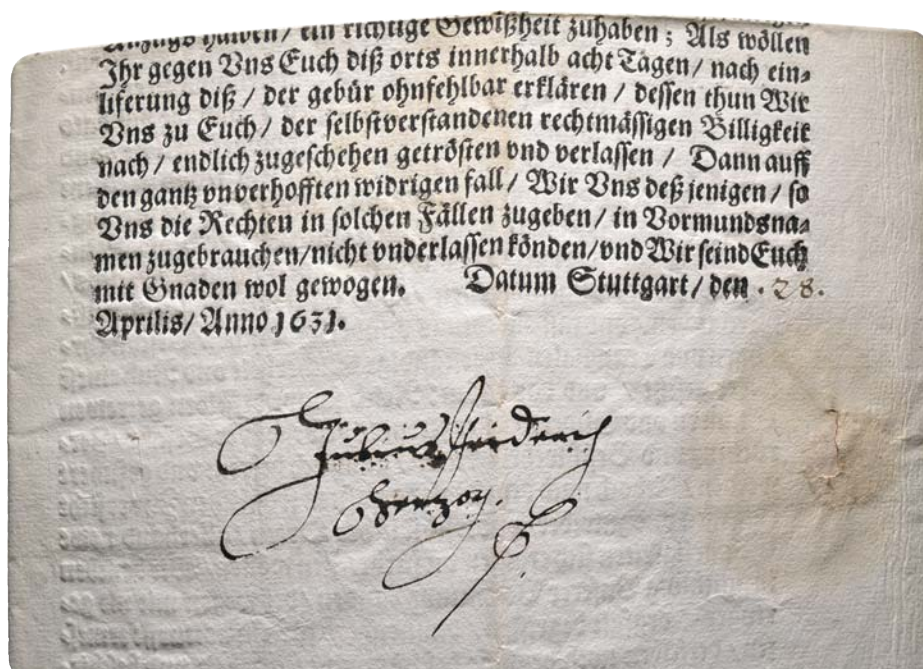 halben / ein richtige Gewißheit zuhaben ; Als wöllen
Ihr gegen Vns Euch diß orts innerhalb acht Tagen / nach ein⸗
liferung diß / der gebür ohnfehlbar erklären / dessen thun Wir
Vns zu Euch / der selbstverstandenen rechtmässigen Billigkeit
nach / endlich zugeschehen getrösten vnd verlassen / Dann auff
den gantz vnverhofften widrigen fall / Wir Vns deß jenigen / so
Vns die Rechten in solchen Fällen zugeben / in Vormundsna⸗
men zugebrauchen / nicht vnderlassen könden / vnd Wir seind Euch
mit Gnaden wol gewogen. Datum Stuttgart / den . 28.
Aprilis / Anno 1631.
Julius Friderich
Hertzog.